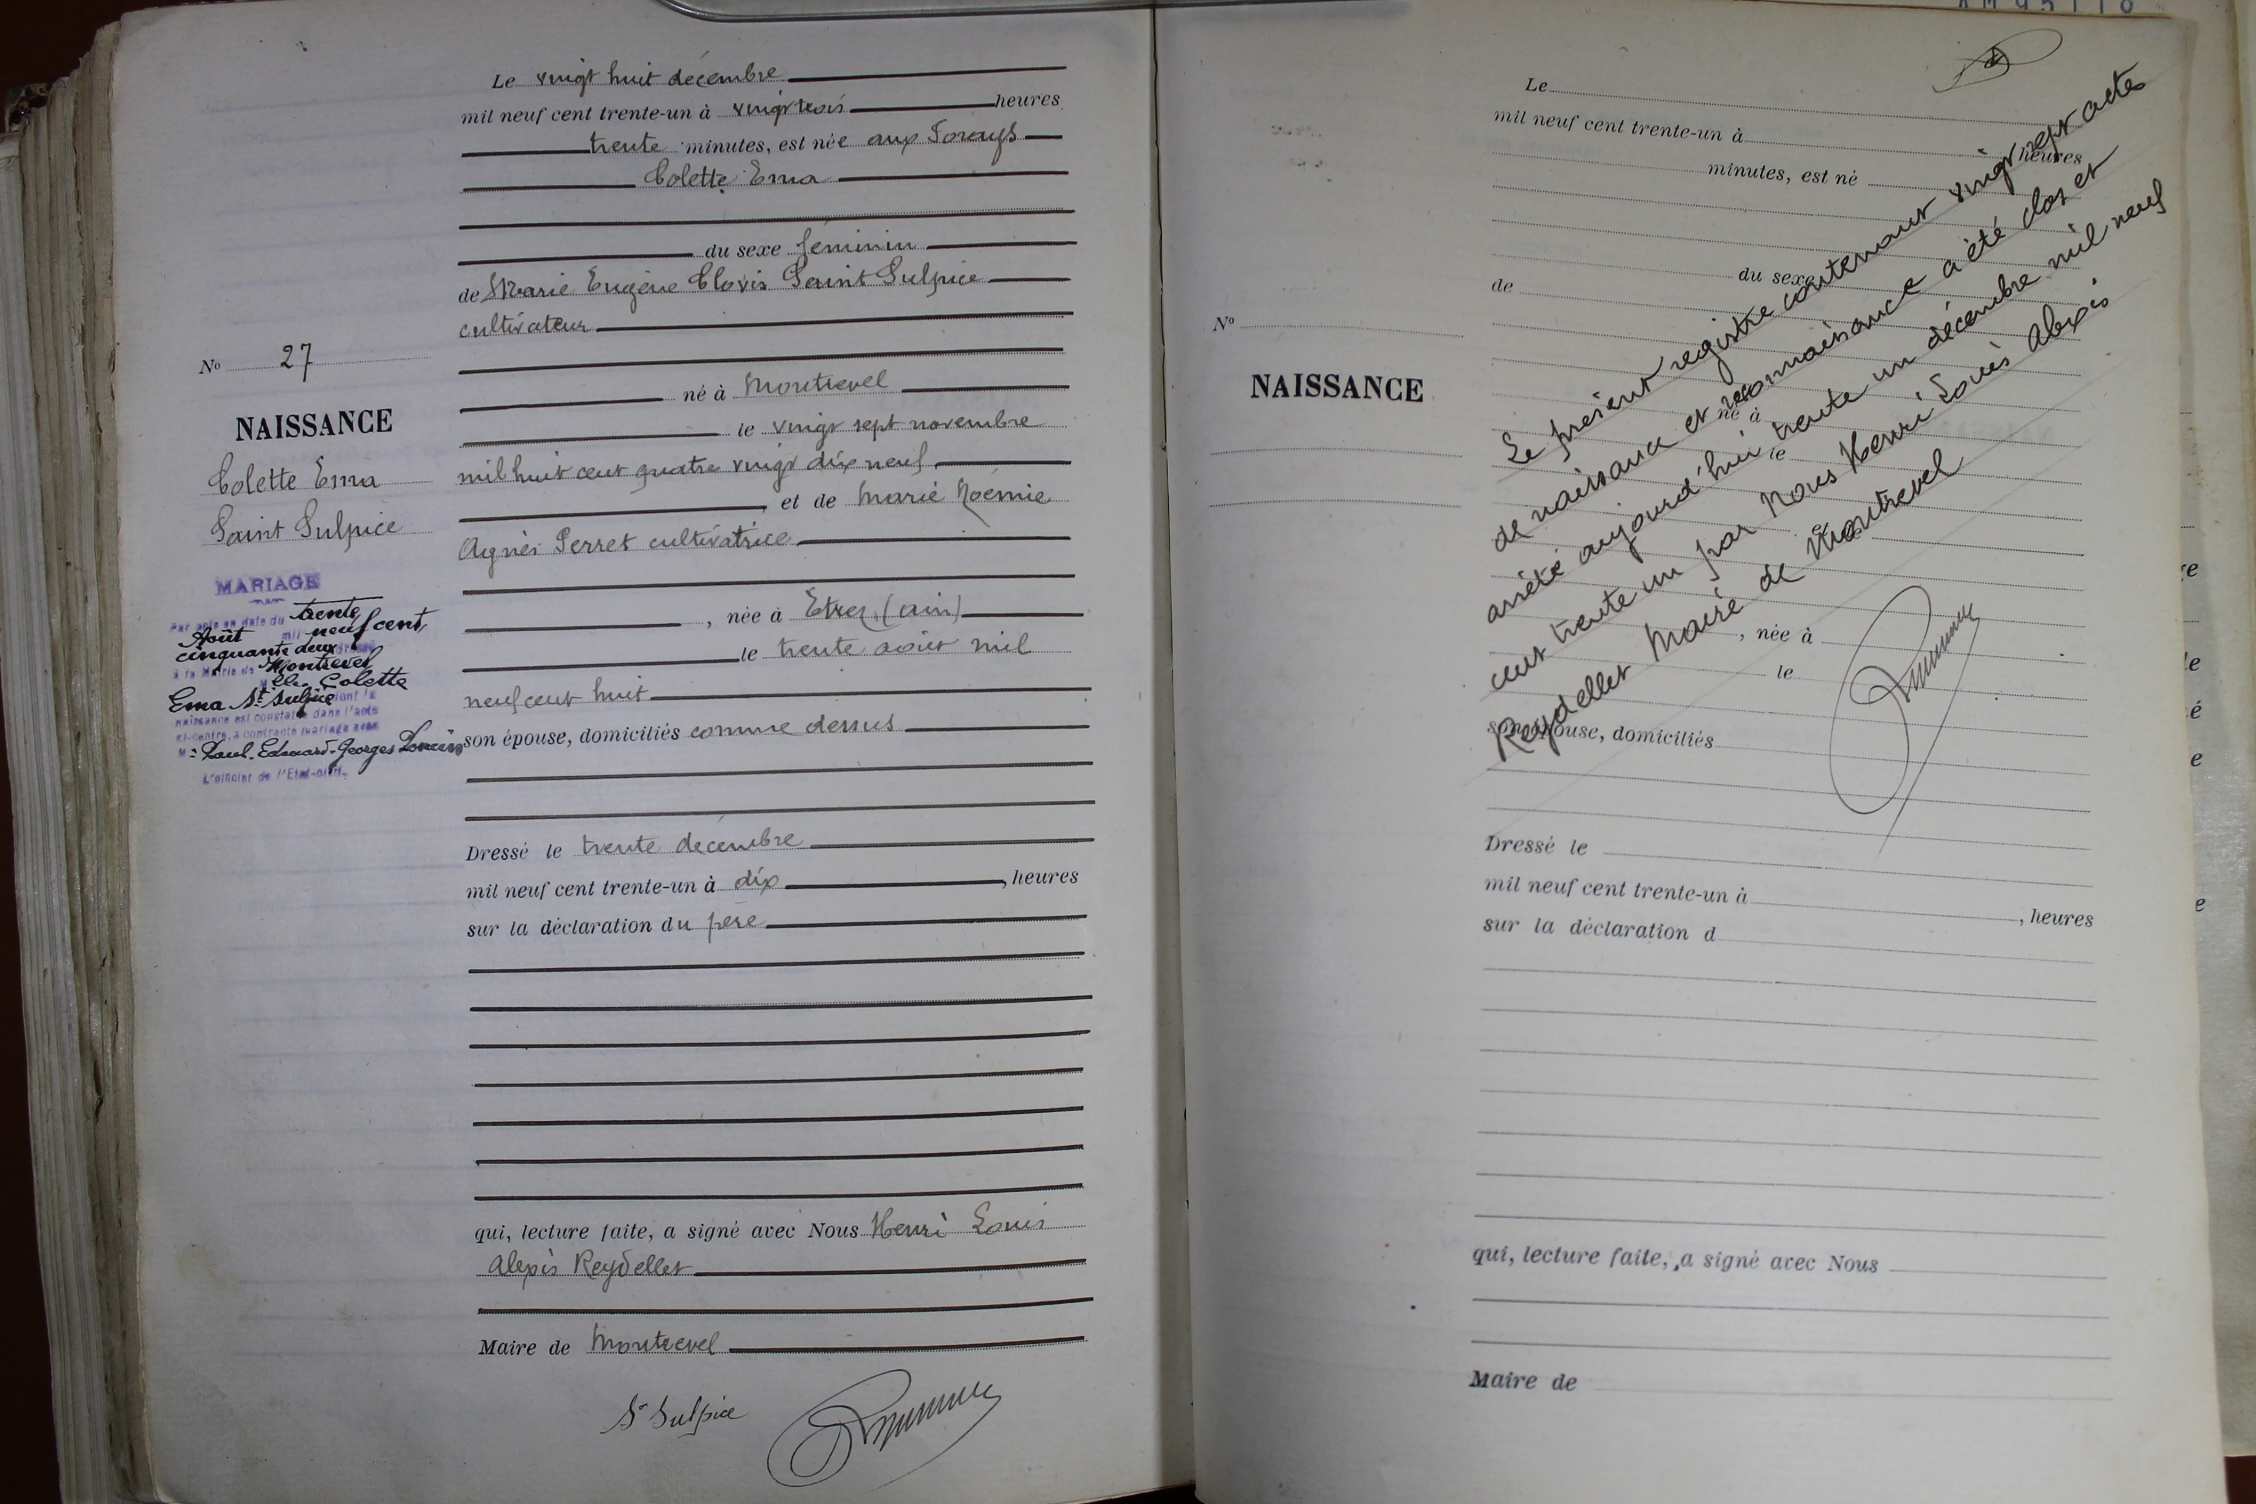 Le vingt huit décembre
mil neuf cent trente-un à vingt trois heures
trente minutes, est née aux
Colette Ema
du sexe féminin
de Marie Eugène Clovis Saint Sulpice
cultivateur
né à Montrevel
le vingt sept novembre
mil huit cent quatre vingt dix neuf
, et de Marie Noémie
Agnès Perret cultivatrice
, née à Etrez (Ain)
le trente août mil
neuf cent huit
son épouse, domiciliés comme dessus
Dressé le trente décembre
mil neuf cent trente-un à dix , heures
sur la déclaration du père
qui, lecture faite, a signé avec Nous Henri Louis
Alexis Reydellet
Maire de Montrevel
St Sulpice
No 27
NAISSANCE
Colette Ema
Saint Sulpice
MARIAGE
Par acte en date du trente
Août mil neuf cent
cinquante deux dressé
à la Mairie de Montrevel
Mlle Colette
Ema St Sulpice dont la
naissance est constatée dans l'acte
ci-contre, a contracté mariage avec
M. Paul-Edouard-Georges
L'officier de l'Etat-civil.
Le
mil neuf cent trente-un à
heures
minutes, est né
du sexe
de
No
NAISSANCE
né à
le
et
, née à
le
son épouse, domiciliés
Le présent registre contenant vingt sept actes
de naissance et reconnaissance a été clos et
arrêté aujourd'hui trente un décembre mil neuf
cent trente un par Nous Henri Louis Alexis
Reydellet Maire de Montrevel
Dressé le
mil neuf cent trente-un à , heures
sur la déclaration d
qui, lecture faite, a signé avec Nous
Maire de